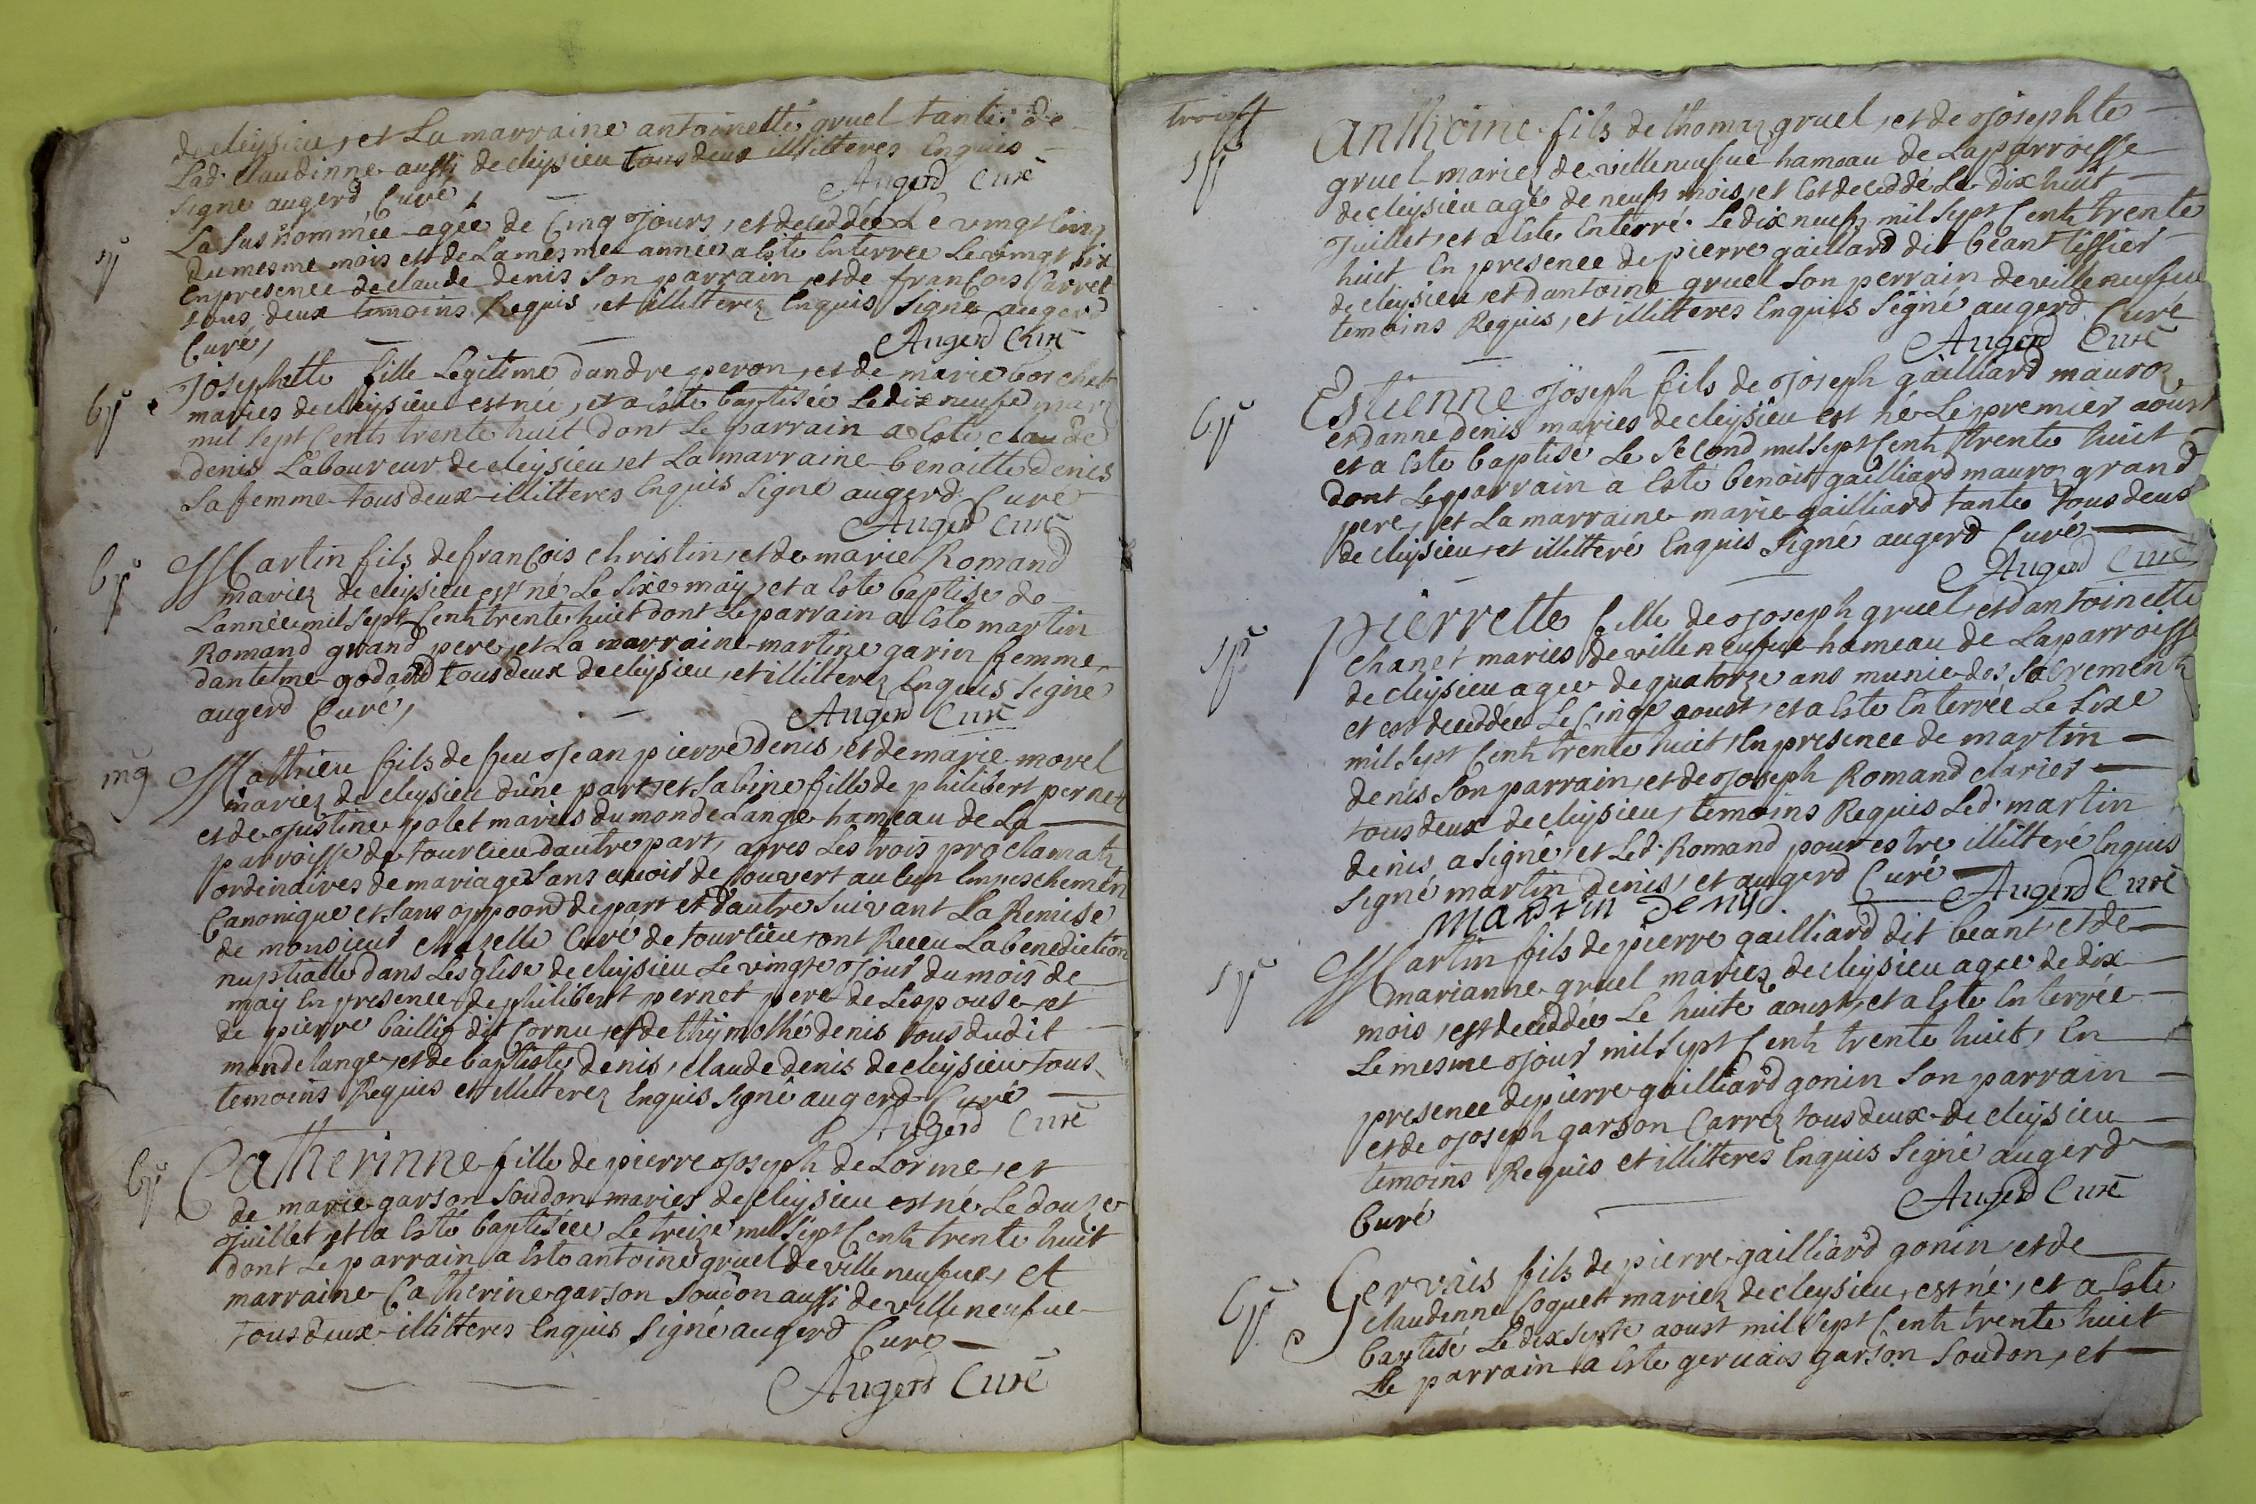 de cleysieu, et La marraine antoinette gruel tante de
Lad. claudinne aussi de cleysieu tous deux illitteres Enquis
Signé augerd Curé,
Augerd Curé
sp
La susnommée agée de Cinq Jours, et deceddée Le vingt Cinq
du mesme mois et de La mesme année a Esté Enterrée Le vingt six
En presence de claude denis son parrain et de francois Carret
tous deux temoins Requis, et illitterez Enquis Signé augerd
Curé,
Augerd Curé
bp
Josephtte fille Legitime dandre peron, et de marie boschet
mariés de cleysieu est née, et a esté baptisée Le dix neufe mars
mil sept Cents trente huit dont Le parrain a Esté claude
denis Laboureur de cleysieu, et La marraine benoitte denis
Sa femme tous deux illitteres Enquis Signé augerd Curé
Augerd Curé
bp
Martin fils de francois christin, et de marie Romand
mariez de cleysieu est né Le sixe may, et a Esté baptisé de
Lannée mil sept Cents trente huit dont Le parrain a Esté martin
Romand grand pere, et La marraine martine garin femme
dantelme godard tous deux de cleysieu, et illitterez Enquis Signé
augerd Curé,
Augerd Curé
mg
Mathieu fils de feu Jean pierre denis, et de marie morel
mariez de cleysieu dûne part, et Sabine fille de philibert pernet
et de Justine polet mariés du mondelange hameau de La
parroisse de tourlieu dautre part, apres Les trois proclamat.
ordinaires de mariage Sans avoir decouvert aucun Empeschement
Canonique et sans oppoond de part et dautre suivant La Remise
de monsieur chazelle Curé de tourlieu, ont Receu La benediction
nuptialle dans Lesglise de cleysieu Le vingte Jour du mois de
may En presence de philibert pernet pere de Lespouse, et
de pierre baillis dit Cornu, et de thymothé denis tous dudit
mondelange, et de baptiste denis, claude denis de cleysieu tous
temoins Requis et illitterez Enquis Signé augerd Curé
Augerd Curé
bp
Catherinne fille de pierre Joseph de Lorme, et
de marie garson Soudon mariés de cleysieu est né Le douze
Juillet, et a Esté baptisée Le treize mil sept Cents trente huit
dont Le parrain a Esté antoine gruel de villeneufue, et
marraine Catherine garson Soudon aussi de villeneufue
tous deux illitteres Enquis Signé augerd Curé
Augerd Curé
sp
Anthoine fils de thomas gruel, et de Josephte
gruel mariés de villeneufue hameau de La parroisse
de cleysieu agé de neufs mois, et Est deceddé Le dix huit
Juillet, et a Esté Enterré Le dix neufs mil sept Cents trente
huit En presence de pierre gaillard dit beant tissier
de cleysieu, et dantoine gruel son perrain de villeneufue
temoins Requis, et illitteres Enquis Signé augerd Curé
Augerd Curé
bp
Estienne Joseph fils de Joseph gailliard mauroz
et danne denis mariés de cleysieu est né Le premier aoust
et a Esté baptisé Le second mil sept Cents trente huit
dont Le parrain a Esté benoit gailliard mauroz grand
pere, et La marraine marie gailliard tante tous deus
de cleysieu, et illitteré Enquis Signé augerd Curé
Augerd Curé
sp
pierrette fille de Joseph gruel, et dantoinette
chanet mariés de villeneufue hameau de La parroisse
de cleysieu agée de quatorze ans munie des Sacrements
et est deceddée Le Cinqe aoust, et a Esté Enterrée Le Sixe
mil sept Cents trente huit, En presence de martin
denis son parrain, et de Joseph Romand clarier
tous deux de cleysieu, temoins Requis Led. martin
denis a signé, et Led. Romand pour estre illitteré Enquis
Signé martin denis, et augerd Curé
Augerd Curé
martin denis
sp
Martin fils de pierre gailliard dit beant, et de
marianne gruel mariez de cleysieu agée de dix
mois, est deceddée Le huite aoust, et a Esté Enterrée
Le mesme Jour mil sept Cents trente huit, En
presence de pierre gailliard gonin son parrain
et de Joseph garson Carrez tous deux de cleysieu
temoins Requis et illitteres Enquis Signé augerd
Curé
Augerd Curé
bp
Gervais fils de pierre gailliard gonin, et de
claudenne Coquet mariez de cleysieu, est né, et a Esté
baptisé Le dix septe aoust mil sept Cents trente huit
Le parrain a Esté gervais garson Soudon, et